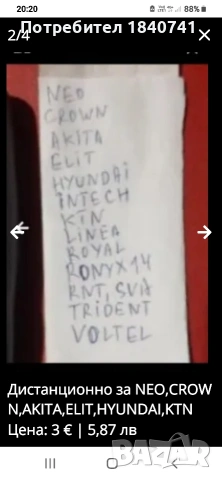 20:20
88%
Потребител 1840741
2/4
NEO
CROWN
AKITA
ELIT
HYUNDAI
INTECH
KTN
LINEA
ROYAL
RONYX14
RNT, SVA
TRIDENT
VOLTEL
Дистанционно за NEO,CROW
N,AKITA,ELIT,HYUNDAI,KTN
Цена: 3 € | 5,87 лв
bazar